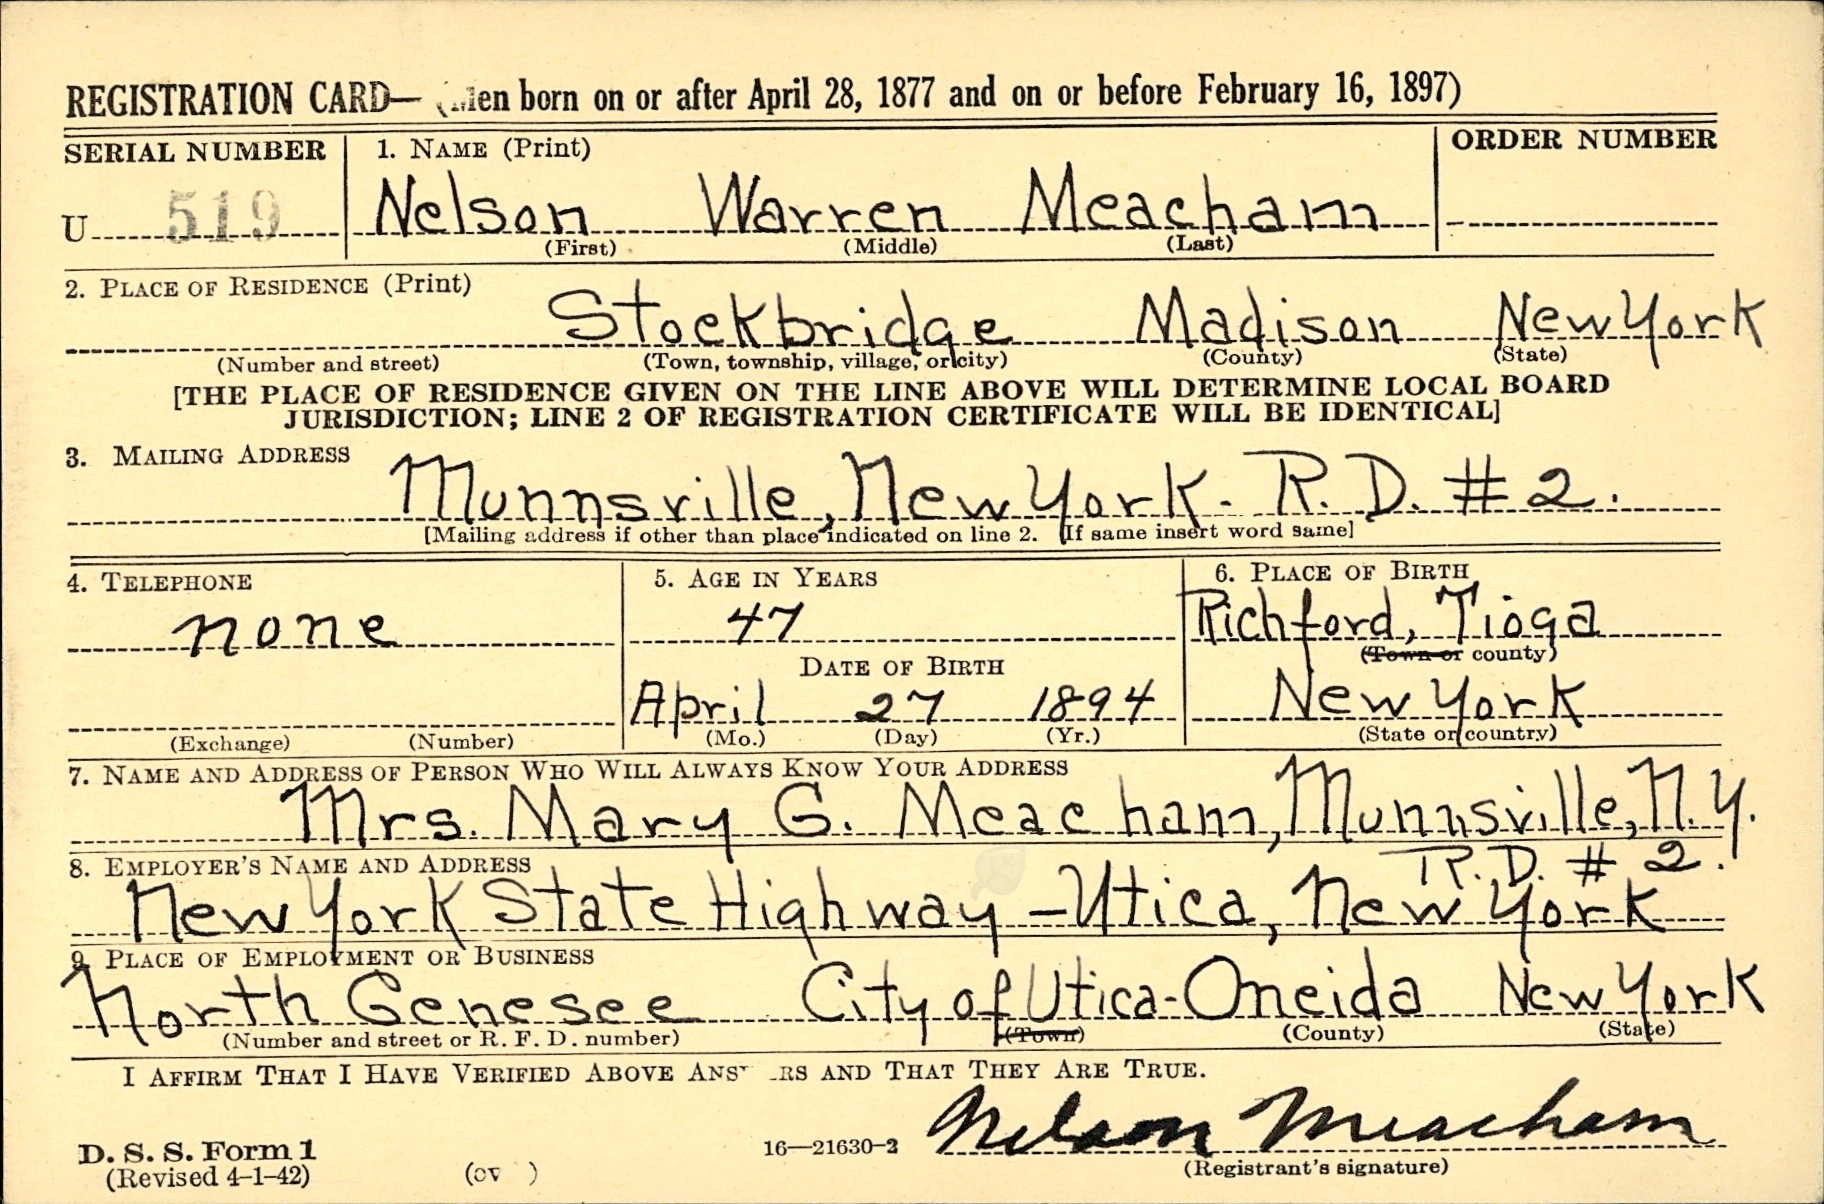 REGISTRATION CARD— (Men born on or after April 28, 1877 and on or before February 16, 1897)
SERIAL NUMBER 1. NAME (Print) ORDER NUMBER
U 519 Nelson Warren Meacham
(First) (Middle) (Last)
2. PLACE OF RESIDENCE (Print)
Stockbridge Madison New York
(Number and street) (Town, township, village, or city) (County) (State)
[THE PLACE OF RESIDENCE GIVEN ON THE LINE ABOVE WILL DETERMINE LOCAL BOARD
JURISDICTION; LINE 2 OF REGISTRATION CERTIFICATE WILL BE IDENTICAL]
3. MAILING ADDRESS
Munnsville, New York. R.D. #2.
[Mailing address if other than place indicated on line 2. If same insert word same]
4. TELEPHONE 5. AGE IN YEARS 6. PLACE OF BIRTH
none 47 Richford, Tioga
(Town or county)
DATE OF BIRTH
April 27 1894 New York
(Exchange) (Number) (Mo.) (Day) (Yr.) (State or country)
7. NAME AND ADDRESS OF PERSON WHO WILL ALWAYS KNOW YOUR ADDRESS
Mrs. Mary G. Meacham, Munnsville, N.Y.
R.D. #2.
8. EMPLOYER'S NAME AND ADDRESS
New York State Highway - Utica, New York
9. PLACE OF EMPLOYMENT OR BUSINESS
North Genesee City of Utica - Oneida New York
(Number and street or R. F. D. number) (Town) (County) (State)
I AFFIRM THAT I HAVE VERIFIED ABOVE ANSWERS AND THAT THEY ARE TRUE.
Nelson Meacham
D. S. S. Form 1 16—21630-2
(Revised 4-1-42) (Registrant's signature)